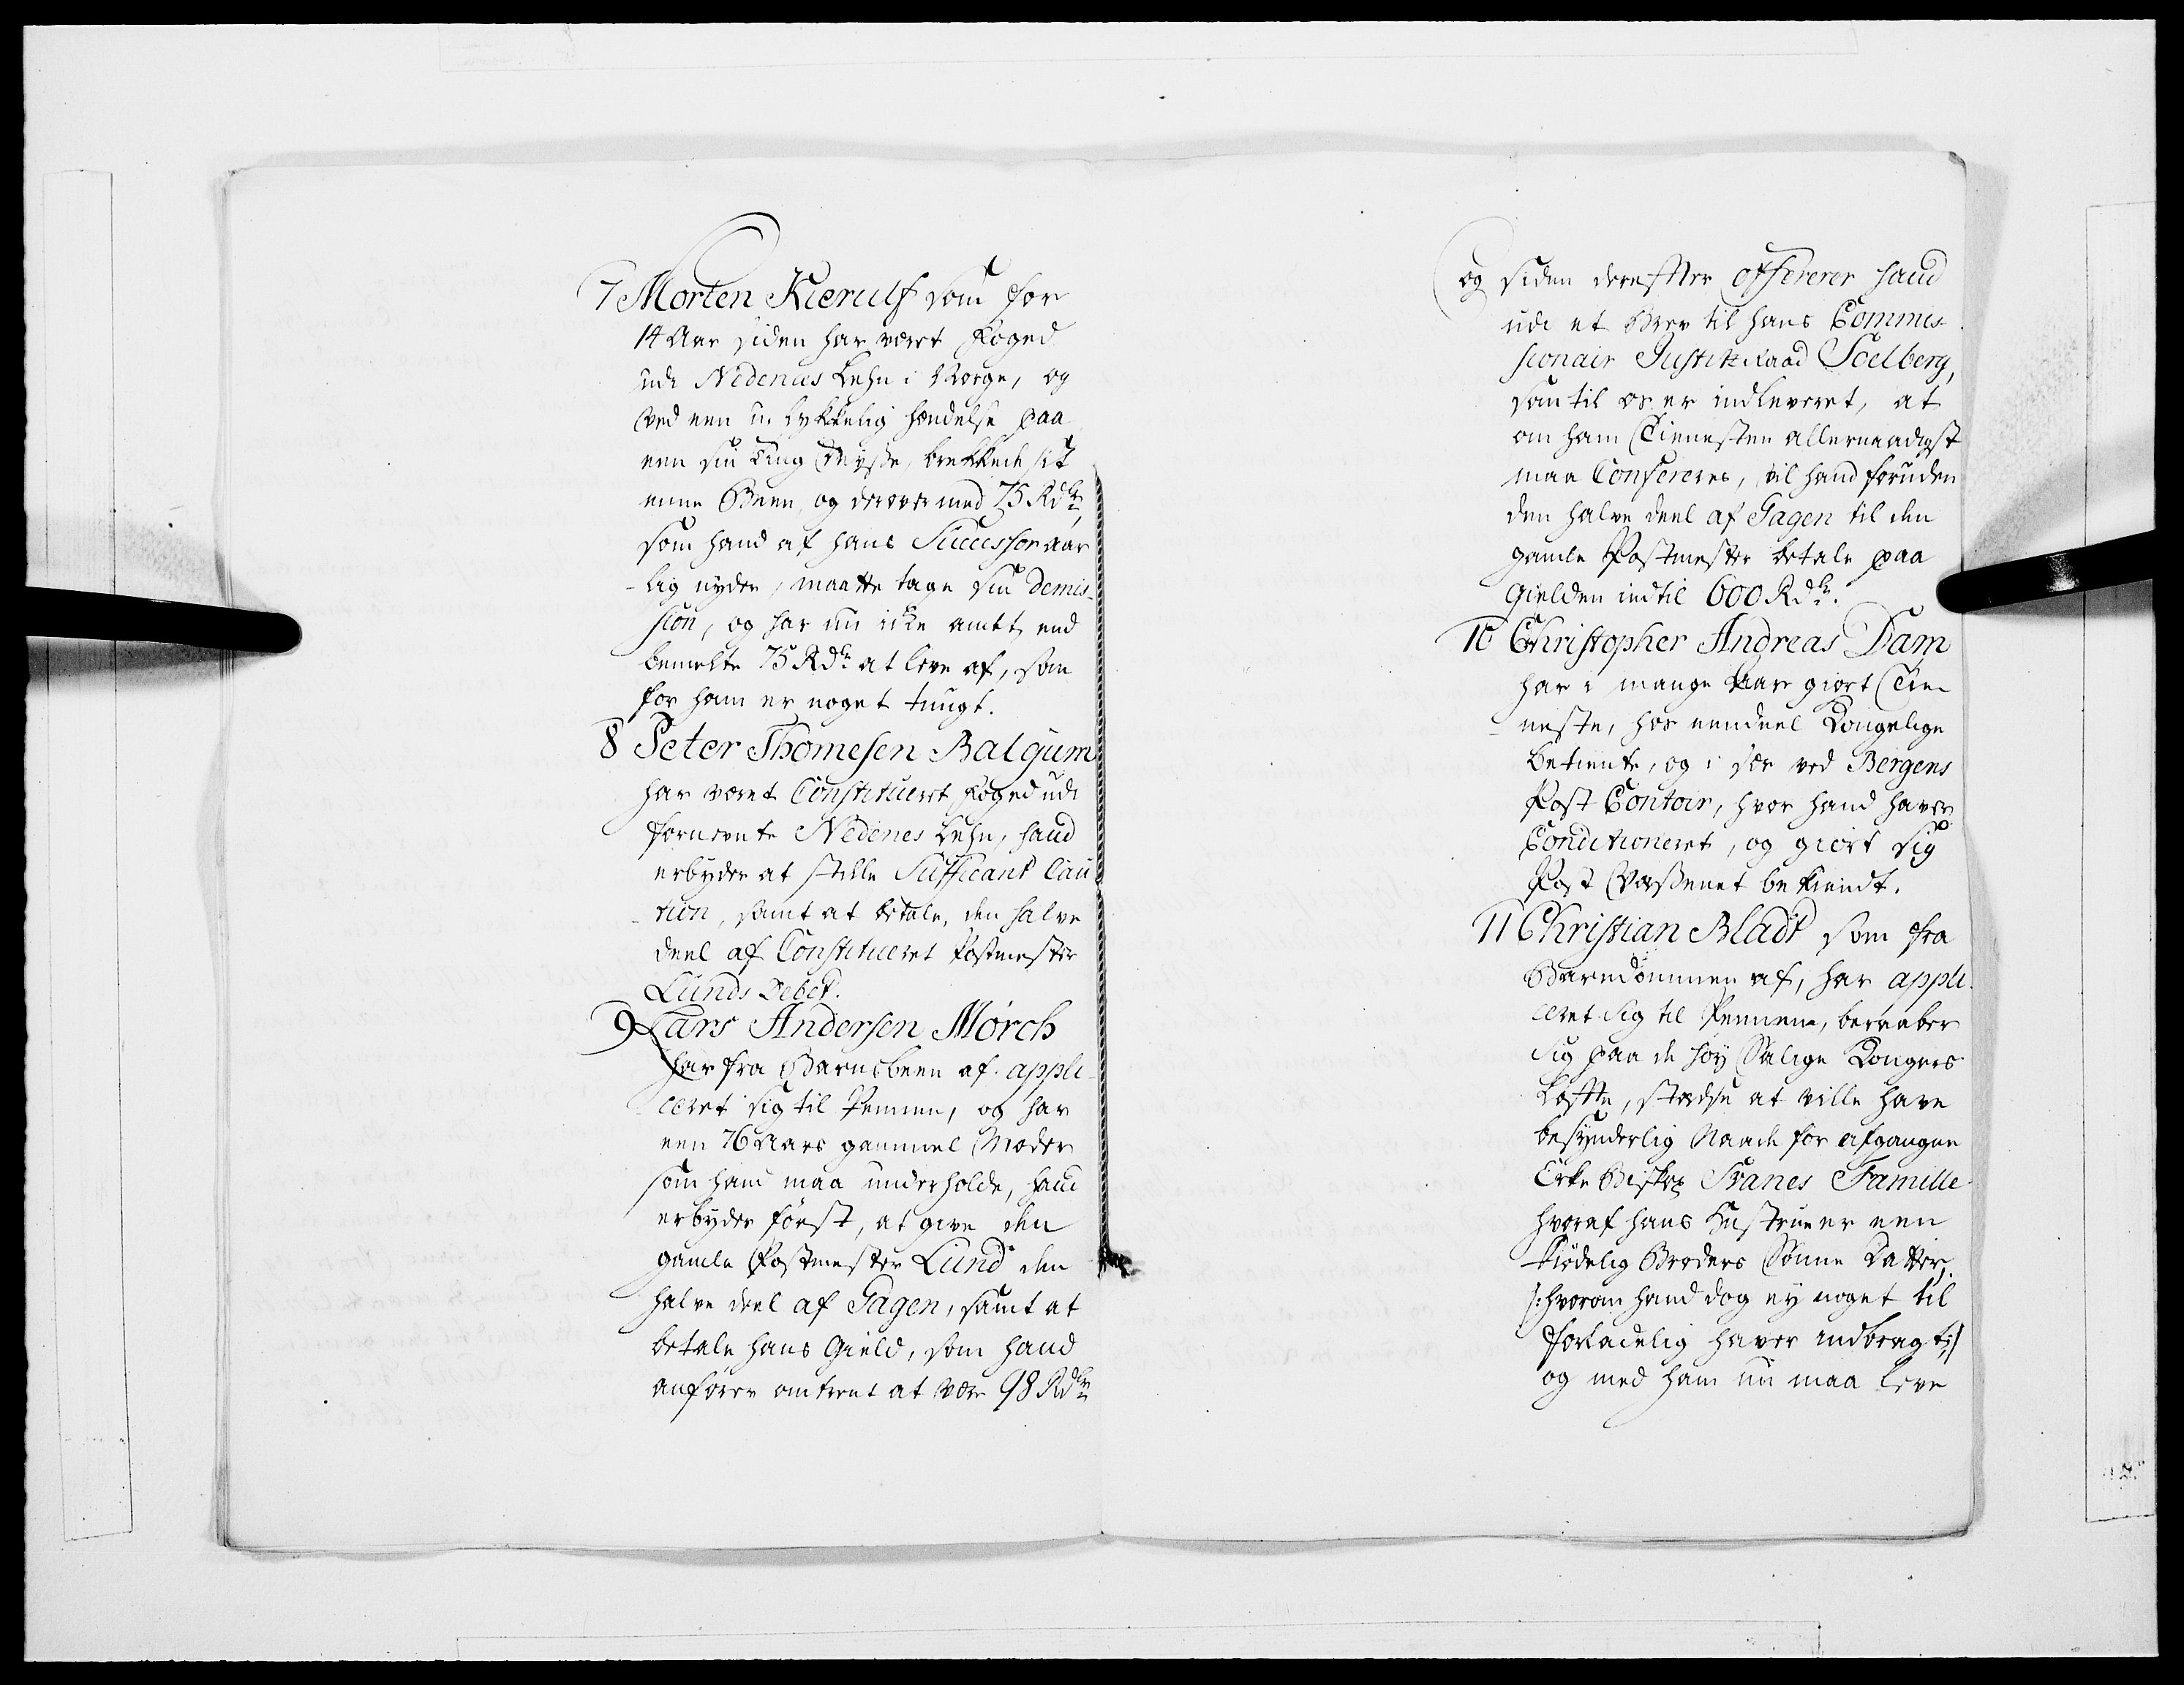 7 Morten Kierulf som for
14 Aar siden har været Foged
udi Nedenæs Lehn i Norge, og
ved een u-lykkelig hændelse paa
een sin Ting Reyse, brekkede sit
eene Been, og derover med 75 Rdlr,
som hand af hans Successor aar-
lig nyder, maatte tage sin demis-
sion, og har nu icke andet end
bemelte 75 Rdlr at leve af, som
for ham er noget tungt.
8 Peter Thomesen Balgum
har været Constitueret Foged udi
fornevnte Nedenes Lehn, hand
erbyder at stille Sufficant Cau-
tion, samt at betale, den halve
deel af Constitueret Postmester
Lunds Debet.
9 Lars Andersen Mörch
har fra Barnsbeen af appli-
ceret sig til Pennen, og har
een 76 Aars gammel Moder
som hand maa underholde, hand
erbyder först, at give den
gamle Postmester Lund den
halve deel af Gagen, samt at
betale hans Gield, som hand
anförer omtrent at være 98 Rdlr
og siden derefter offererer hand
udi et Brev til hans Commis-
sionair Justitz Raad Soelberg,
som til os er indleveret, at
om ham Tienesten allernaadigst
maa Confereres, vil hand foruden
den halve deel af Gagen til den
gamle Postmester betale paa
Gielden indtil 600 Rdlr.
10 Christopher Andreas Dam
har i mange Aar giort Tie-
neste, hos eendeel Kongelige
betiente, og i sær ved Bergens
Post Contoir, hvor hand haver
Conditioneret, og giort sig
Post Væsenet bekiendt.
11 Christian Bladt som fra
Barndommen af, har appli-
ceret sig til Pennen, beraaber
sig paa de höy Salige Kongers
Löfte, stedse at ville have
besynderlig Naade for afgangne
Erke Biskop Svanes Famille
hvoraf hans Hustrue er een
Kiödelig Broders Sönne Datter,
/: hvorom hand dog ey noget til
forladelig haver indbragt :/
og med ham nu maa leve